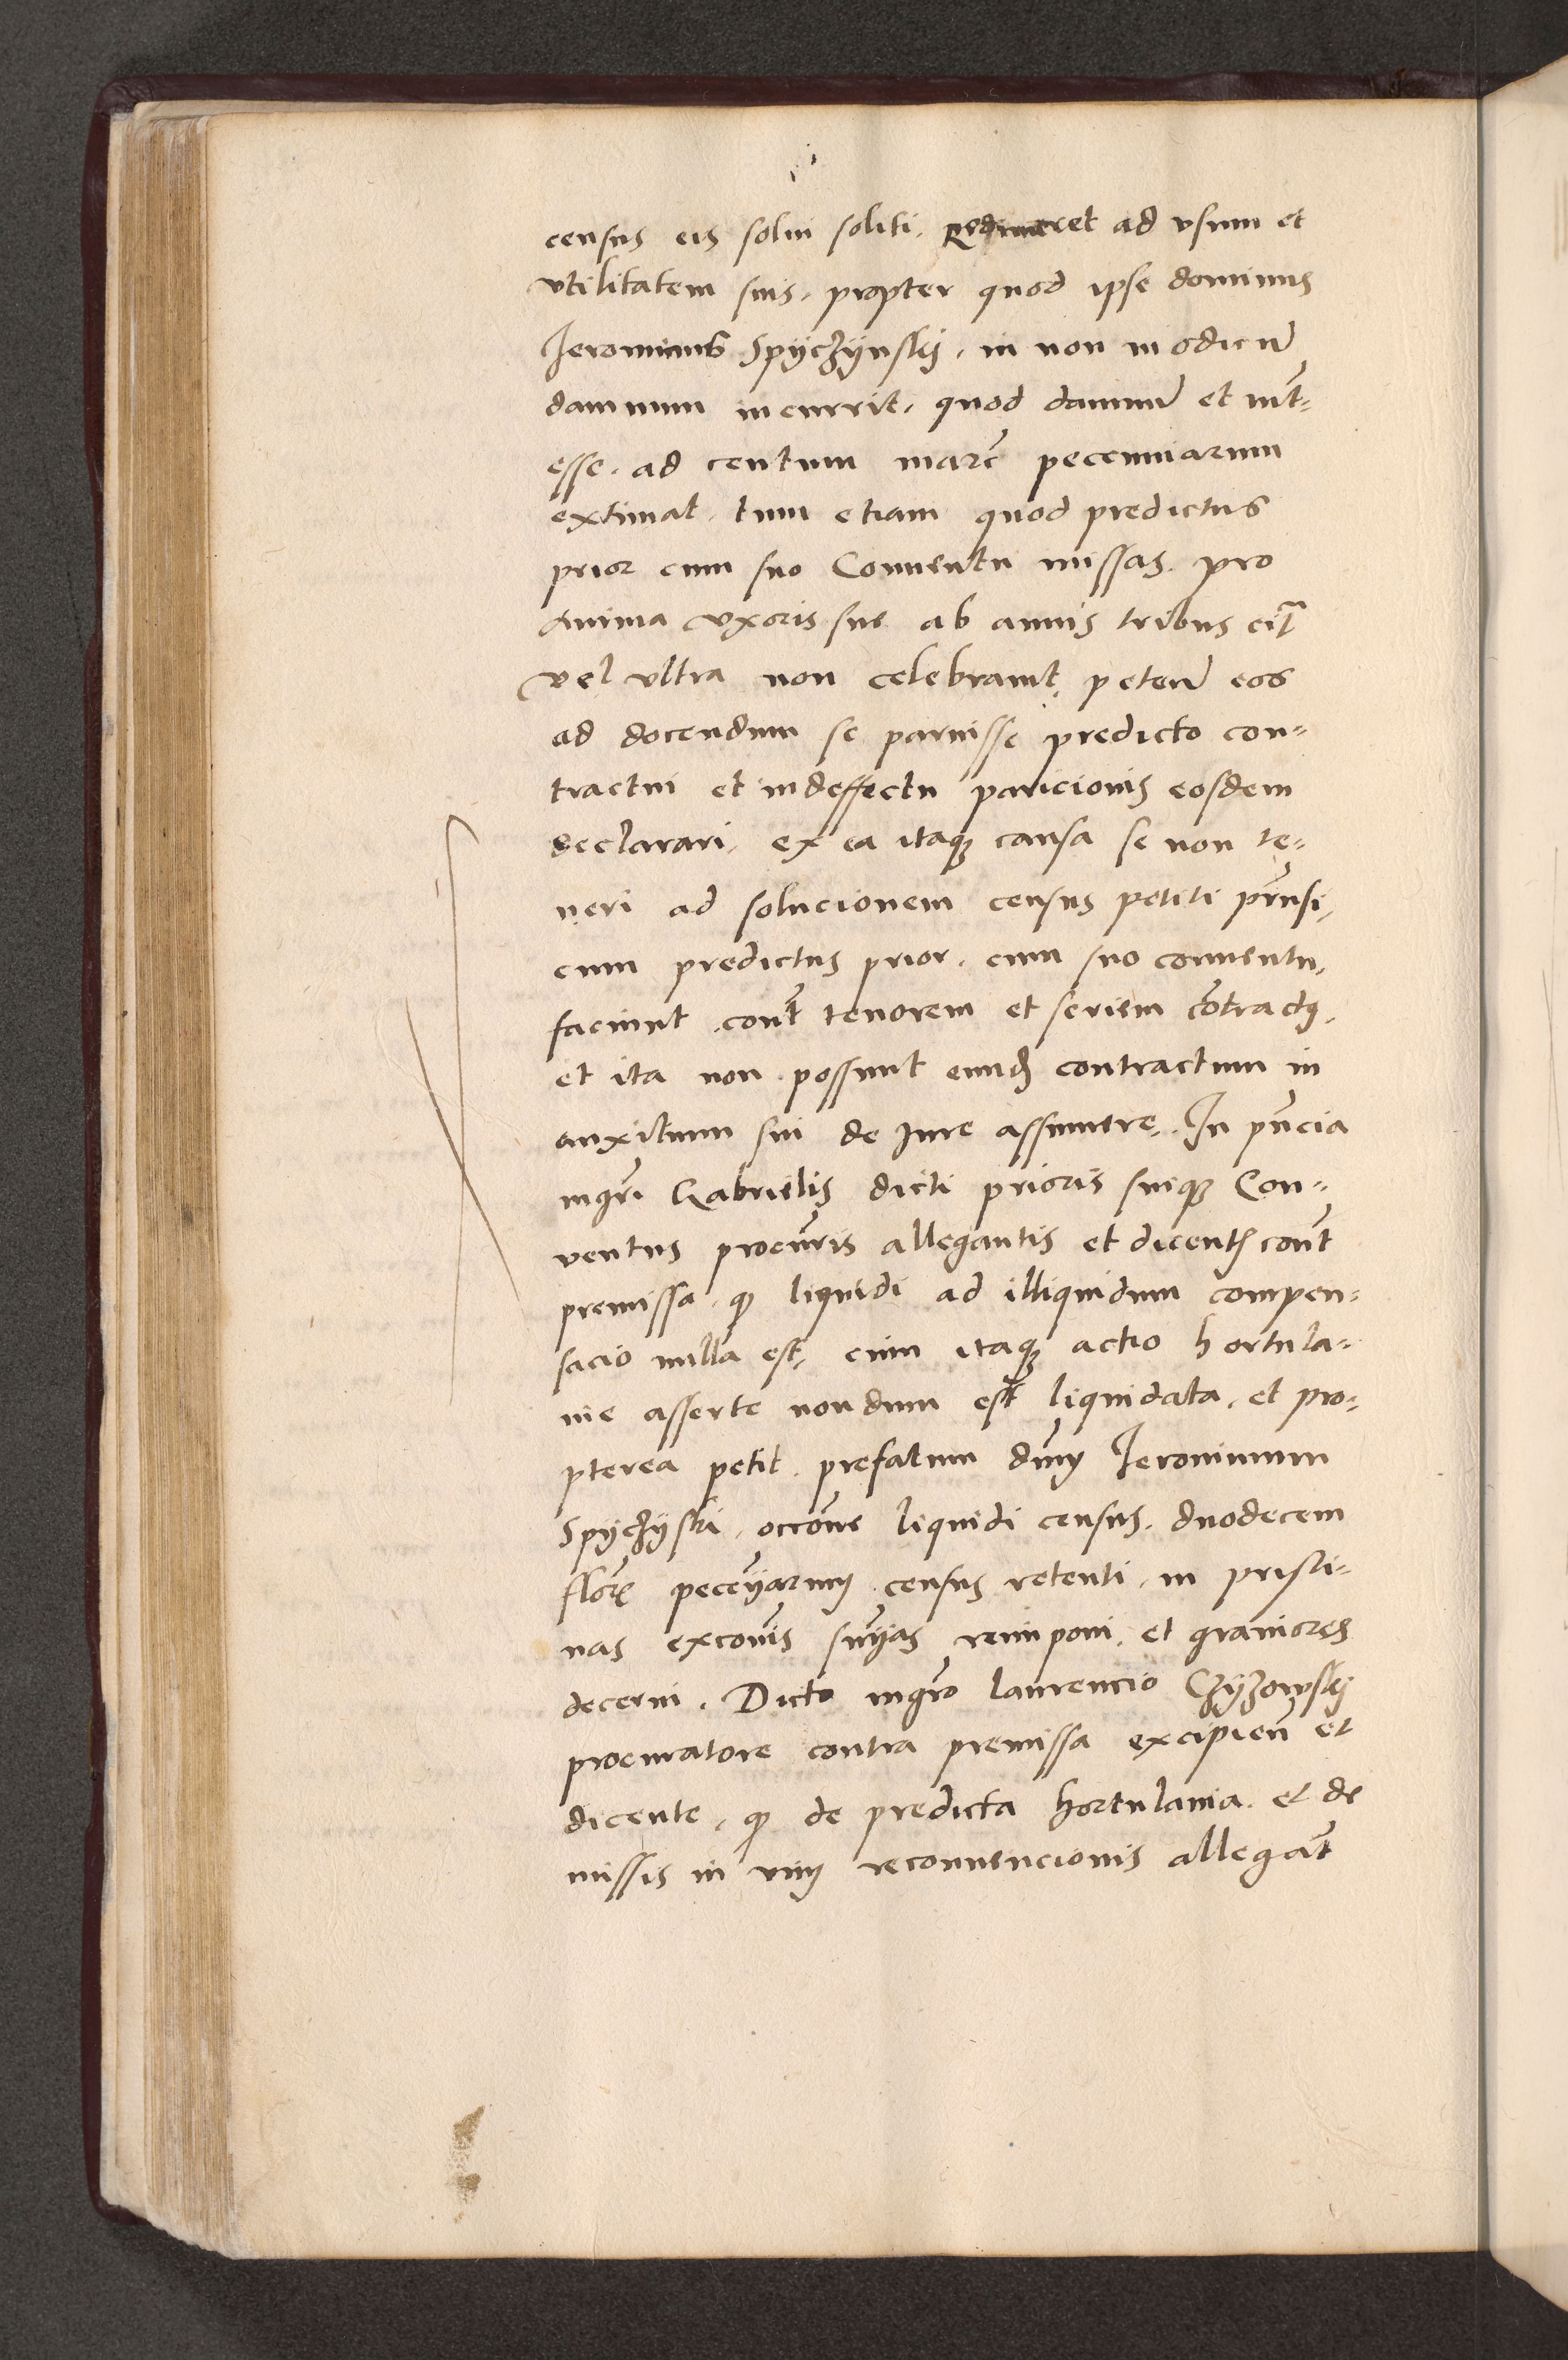 census eis solui soliti. Redimeret ad vsum et
vtilitatem suis. propter quod ipse dominus
Jeronimus Spyczynsky. in non modicu͂
damnum incurrit. quod damnu͂ et int͂=
esse. ad centum marc͂ pecuniarum
extimat. tum etiam quod predictus
prior cum suo Conuentu missas. pro
anima vxoris sue ab annis tribus cit͂
vel vltra non celebrant. peten͂ eos
ad docendum se paruisse predicto con=
tractui et in deffectu paricionis eosdem
declarari. ex ea itaqꝫ causa se non te=
neri ad solucionem census petiti p͂nsi.
cum predictus prior. cum suo conuentu.
faciunt. cont͂ tenorem et seriem co͂tractꝰ.
et ita non possunt eundꝫ contractum in
auxilium sui de iure assumere. In pn͂cia
mgr͂i Gabrielis dicti prioris suiqꝫ Con=
ventus procur͂is allegantis et dicentꝭ cont͂
premissa. ꝙ liquidi ad illiquidum compen=
sacio nulla est, cum itaqꝫ actio hortula=
nie asserte nondum est liquidata. et pro=
pterea petit. prefatum dn͂m Jeronimum
Spyczyski. occo͂ne liquidi census. duodecem
flor͂ pecc͂iarum census retenti. in pristi=
nas exco͂nis sn͂ias reimponi. et grauiores
decerni. Dicto mgr͂o laurencio Czyzowsky
procuratore contra premissa excipien͂ et
dicente. ꝙ de predicta hortulania. et de
missis in vim reconuencionis allegat͂